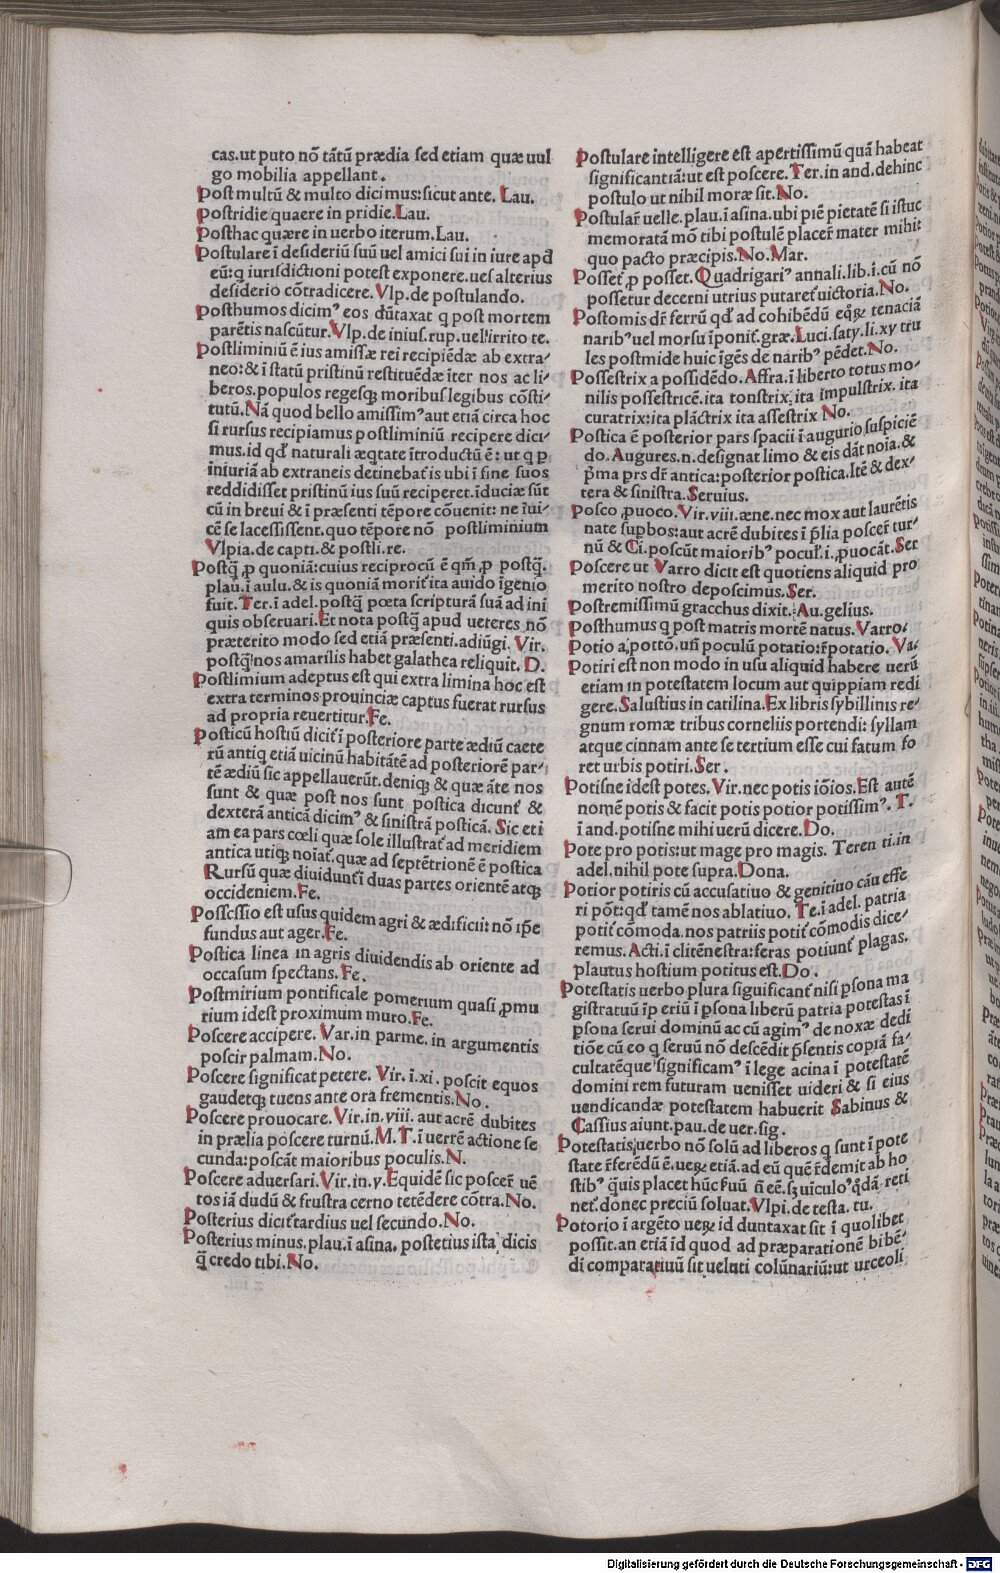 cas.ut puto nõ tãtũ prædia sed etiam quæ uul
go mobilia appellant.
Post multũ & multo dicimus:sicut ante. Lau.
Postridie quaere in pridie.Lau.
Posthac quære in uerbo iterum.Lau.
Postulare ĩ desideriũ suũ uel amici sui in iure apd
eũ:q iurisdictioni potest exponere.uel alterius
desiderio cõtradicere.Vlp.de postulando.
Posthumos dicimꝰ eos dũtaxat q post mortem
parẽtis nascũtur.Vlp.de inius.rup.uel irrito te.
Postliminiũ ẽ ius amissæ rei recipiẽdæ ab extra⸗
neo:& ĩ statũ pristinũ restituẽdæ ĩter nos ac li⸗
beros.populos regesqꝫ moribus legibus cõsti⸗
tutũ.Nã quod bello amissimꝰ aut etiã circa hoc
si rursus recipiamus postliminiũ recipere dici⸗
mus.id qđ naturali æqtate ĩtroductũ ẽ: ut q p
iniuriã ab extraneis detinebat̃ is ubi ĩ fine suos
reddidisset pristinũ ius suũ reciperet.ĩduciæ sũt
cũ in breui & ĩ præsenti tẽpore cõuenit: ne ĩui⸗
cẽ se lacessissent.quo tẽpore nõ postliminium
Vlpia.de capti.& postli.re.
Postq̃ ꝓ quoniã:cuius reciprocũ ẽ qm̃ ꝓ postq̃.
plau.ĩ aulu.& is quoniã morit̃ ita auido ĩgenio
fuit.Ter.ĩ adel.postq̃ poeta scripturã suã ad ini
quis obseruari.Et nota postq̃ apud ueteres nõ
præterito modo sed etiã præsenti.adiũgi. Vir.
postq̃ nos amarilis habet galathea reliquit. D.
Postlimium adeptus est qui extra limina hoc est
extra terminos prouinciæ captus fuerat rursus
ad propria reuertitur.Fe.
Posticũ hostiũ dicit̃ ĩ posteriore parte ædiũ caete
rũ antiq etiã uicinũ habitãtẽ ad posteriorẽ par⸗
tẽ ædiũ sic appellauerũt.deniqꝫ & quæ ãte nos
sunt & quæ post nos sunt postica dicunt̃ &
dexterã anticã dicimꝰ & sinistrã posticã. Sic eti
am ea pars cœli quæ sole illustrat̃ ad meridiem
antica utiqꝫ noĩat̃.quæ ad septẽtrionẽ ẽ postica
Rursũ quæ diuidunt̃ ĩ duas partes orientẽ atqꝫ
occideniem.Fe.
Possessio est usus quidem agri & ædificii: nõ ip̃e
fundus aut ager.Fe.
Postica linea in agris diuidendis ab oriente ad
occasum spectans. Fe.
Postmirium pontificale pomerium quasi ꝓmu
rium idest proximum muro.Fe.
Poscere accipere. Var.in parme. in argumentis
poscir palmam.No.
Poscere significat petere. Vir. ĩ.xi. poscit equos
gaudetqꝫ tuens ante ora frementis.No.
Poscere prouocare. Vir.in.viii. aut acrẽ dubites
in prælia poscere turnũ.M.T.ĩ uerrẽ actione se
cunda:poscãt maioribus poculis.N.
Poscere aduersari.Vir.in.y.Equidẽ sic poscer̃ uẽ
tos iã dudũ & frustra cerno tetẽdere cõtra.No.
Posterius dicit̃ tardius uel secundo.No.
Posterius minus.plau.ĩ asina. postetius ista dicis
q̃ credo tibi.No.
Postulare intelligere est apertissimũ quã habeat
significantiã:ut est poscere.Ter.in and.dehinc
postulo ut nihil moræ sit.No.
Postular̃ uelle.plau.ĩ asina.ubi piẽ pietatẽ si istuc
memoratã mõ tibi postulẽ placer̃ mater mihi:
quo pacto præcipis.No.Mar.
Posset̃ ꝓ posset. Quadrigariꝰ annali.lib.i.cũ nõ
possetur decerni utrius putaret̃ uictoria.No.
Postomis dr̃ ferrũ qđ ad cohibẽdũ eqꝝ tenaciã
naribꝰ uel morsu ĩponit̃.græ.Luci.saty.li.xy tru
les postmide huic ĩgẽs de naribꝰ pẽdet.No.
Possestrix a possidẽdo.Affra.ĩ liberto totus mo⸗
nilis possestricẽ.ita tonstrix:ita impulstrix.ita
curatrix:ita plãctrix ita assestrix No.
Postica ẽ posterior pars spacii ĩ augurio suspiciẽ
do.Augures.n.designat limo & eis dãt noĩa.&
p̃ma prs dr̃ antica:posterior postica.Itẽ & dex⸗
tera & sinistra.Seruius.
Posco ꝓuoco.Vir.viii.æne.nec mox aut laurẽtis
nate supbos:aut acrẽ dubites ĩ p̃lia poscer̃ tur⸗
nũ & Ci.poscũt maioribꝰ pocul̃.i.ꝓuocãt.Ser
Poscere ut Varro dicit est quotiens aliquid pro
merito nostro deposcimus.Ser.
Postremissimũ gracchus dixit.Au.gelius.
Posthumus q post matris mortẽ natus.Varro.
Potio a pottõ.uñ poculũ potatio:r̃potatio. Va.
Potiri est non modo in usu aliquid habere uerũ
etiam in potestatem locum aut quippiam redi
gere.Salustius in catilina.Ex libris sybillinis re⸗
gnum romæ tribus corneliis portendi: syllam
atque cinnam ante se tertium esse cui fatum fo
ret urbis potiri.Ser.
Potisne idest potes. Vir.nec potis iõios.Est autẽ
nomẽ potis & facit potis potior potissimꝰ. T.
ĩ and.potisne mihi uerũ dicere.Do.
Pote pro potis:ut mage pro magis. Teren ti.in
adel.nihil pote supra.Dona.
Potior potiris cũ accusatiuo & genitiuo cãu effe
ri põt:qđ tamẽ nos ablatiuo. Te.ĩ adel. patria
potit̃ cõmoda.nos patriis potit̃ cõmodis dice⸗
remus.Acti.ĩ clitẽnestra:feras potiunt̃ plagas.
plautus hostium potitus est.Do.
Potestatis uerbo plura siguificant̃ nisi ꝑsona ma
gistratuũ ĩp eriũ ĩ ꝑsona liberũ patria potestas ĩ
ꝑsona serui dominũ ac cũ agimꝰ de noxæ dedi
tiõe cũ eo q seruũ nõ descẽdit p̃sentis copiã fa⸗
cultatẽque significamꝰ ĩ lege acina ĩ potestatẽ
domini rem futuram uenisset uideri & si eius
uendicandæ potestatem habuerit Sabinus &
Cassius aiunt.pau.de uer.sig.
Potestatis uerbo nõ solũ ad liberos q sunt ĩ pote
state r̃ferẽdũ ẽ.ueꝝ etiã.ad eũ quẽ r̃demit ab ho
stibꝰ q̃uis placet hũc s̃uũ ñ eẽ.sꝫ uĩculo q̃dã reti
net̃.donec preciũ soluat.Vlpi.de testa. tu.
Potorio ĩ argẽto ueꝝ id duntaxat sit ĩ quolibet
possit.an etiã ĩd quod ad præparationẽ bibẽ⸗
di comparatiuũ sit ueluti colũnariũ:ut urceoli
Digitalisierung gefördert durch die Deutsche Forschungsgemeinschaft - DFG